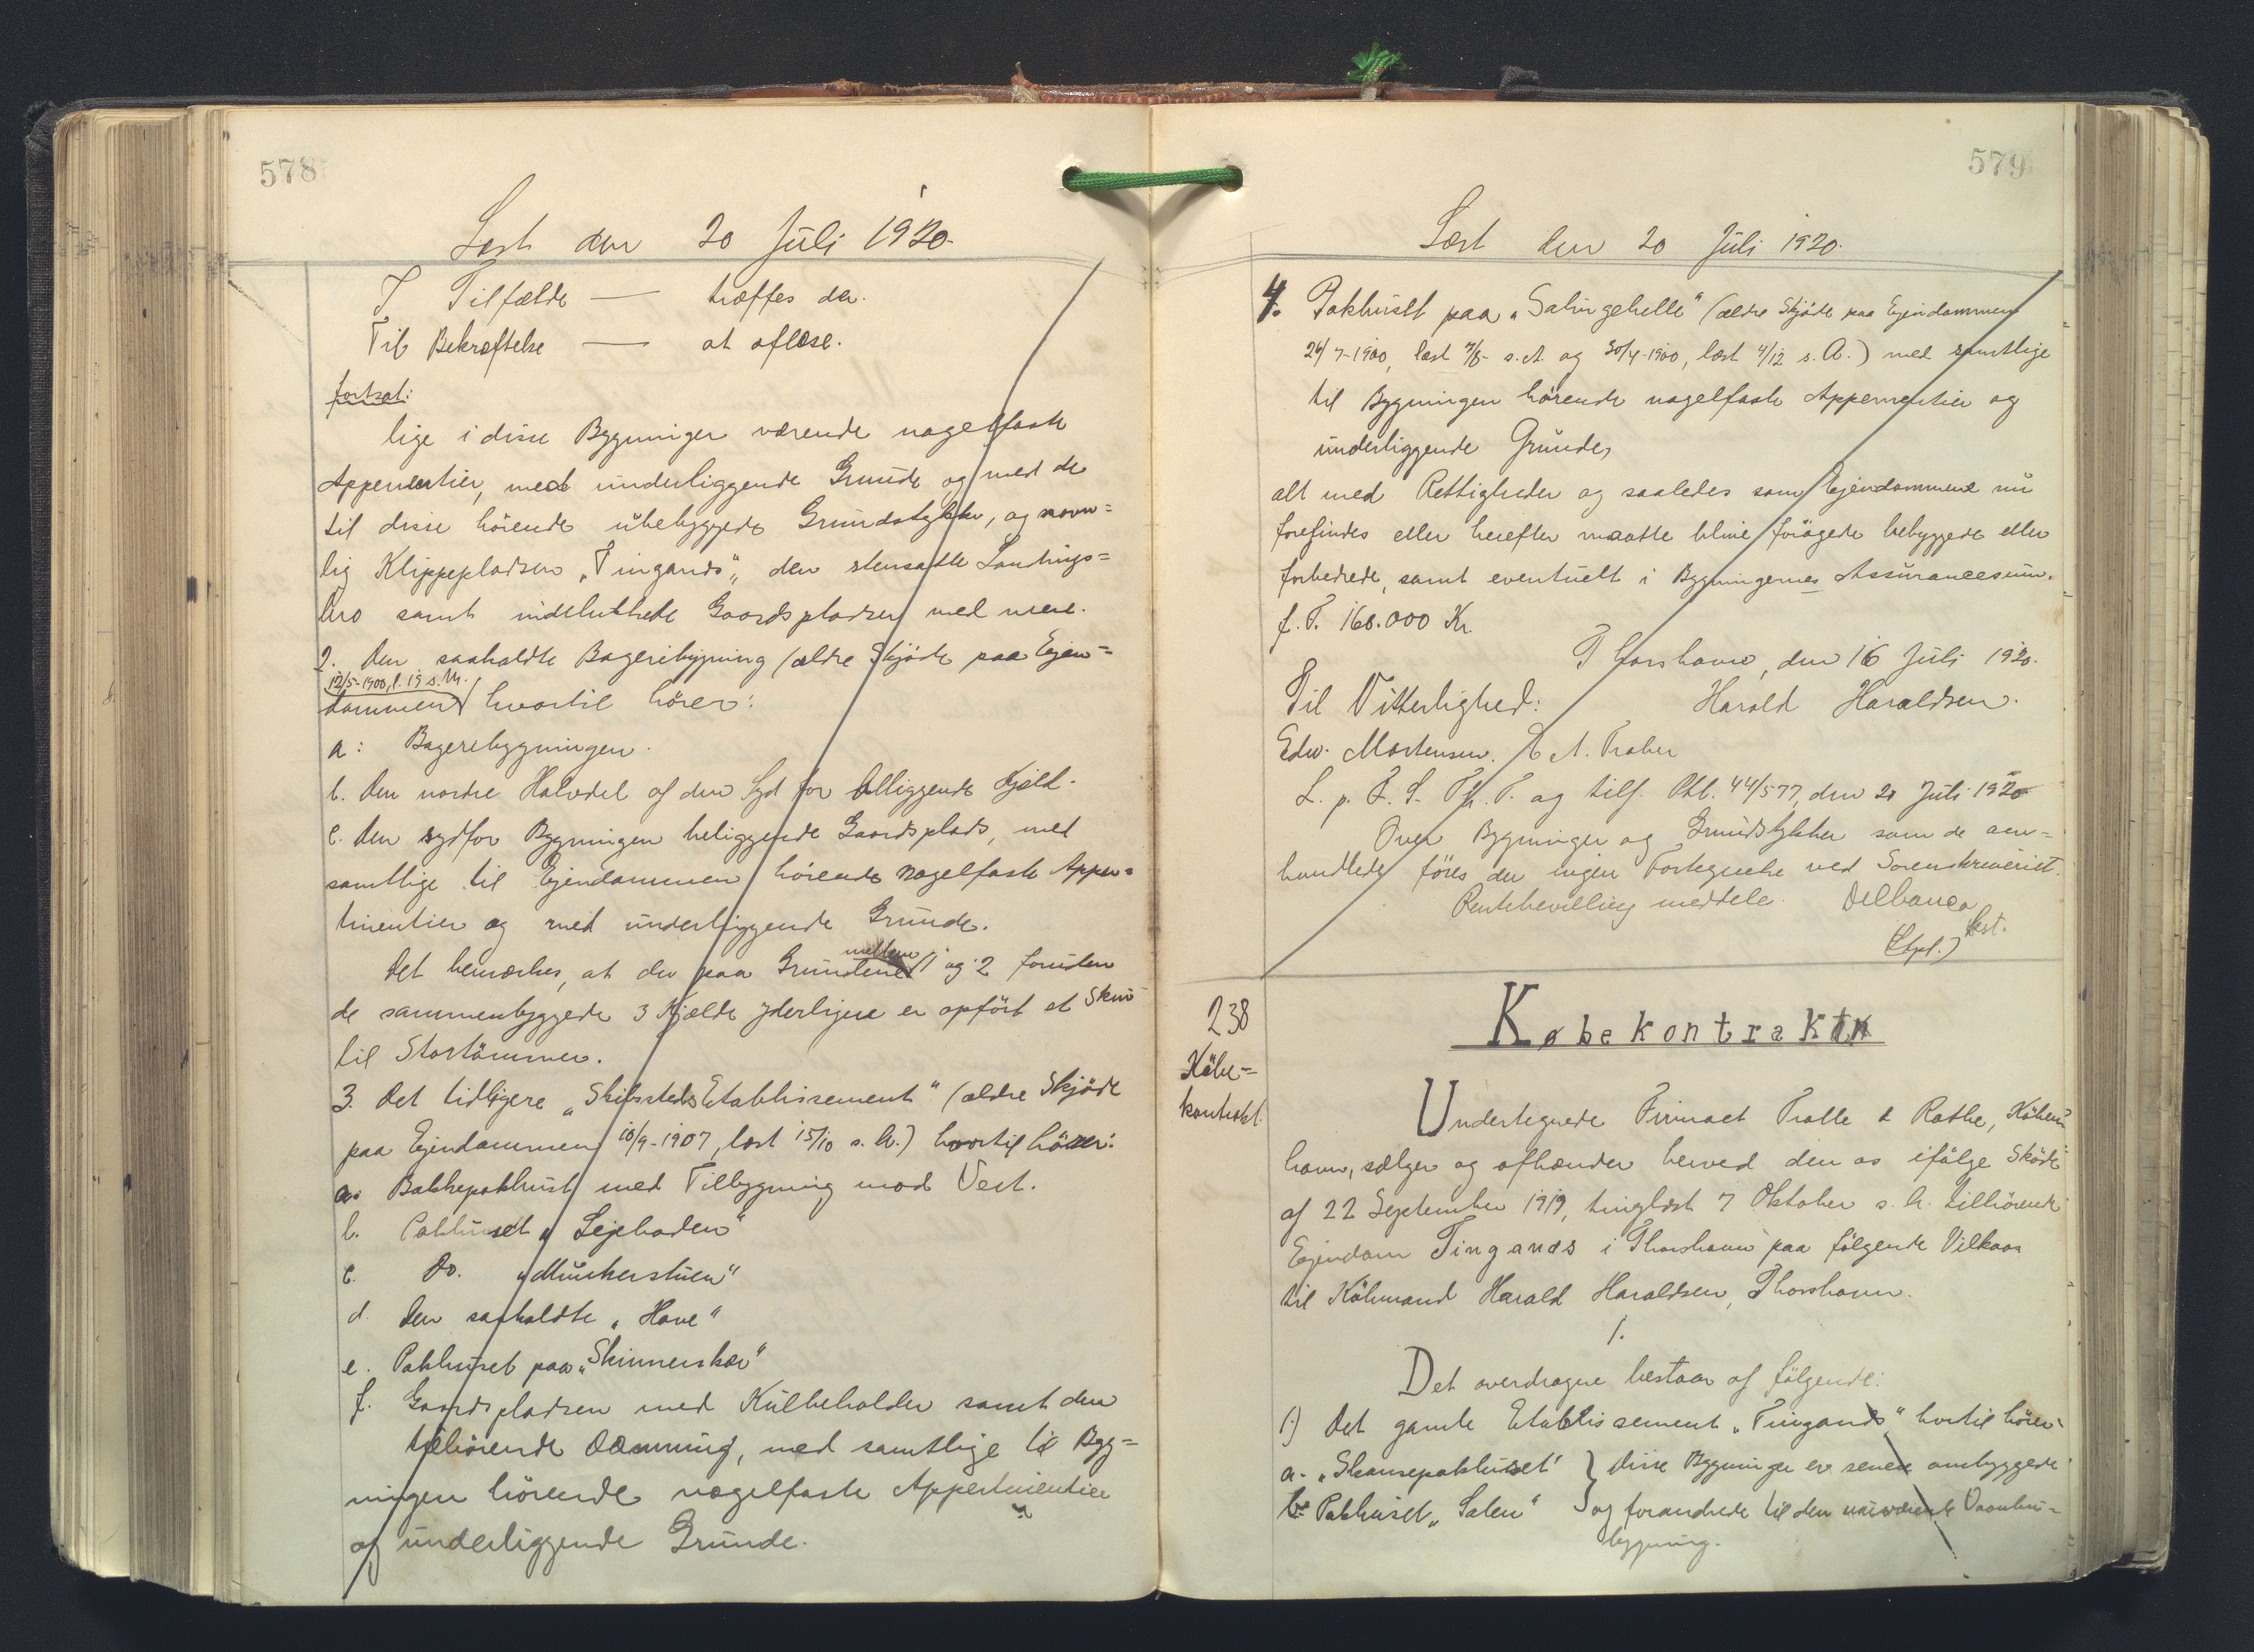 578
Læst den 20 Juli 1920.
I Tilfælde — træffes der.
Til Bekræftelse — at aflæse.
fortsat:
lige i disse Bygninger værende nagelfaste
Appertentier, med underliggende Grunde og med de
til disse hörende ubebyggede Grundstykker, og navn=
lig Klippepladsen "Tinganæs", den stensatte Landings=
bro samt indelukkede Gaardspladser med mere.
2. Den saakaldte Bageribygning (ældre Skjöde paa Ejen=
12/5-1900, l. 19 s. M.
dommen) hvortil hörer:
a: Bageribygningen.
b. Den nordre Halvdel af den Syd for beliggende Kjeld.
c. Den sydfor Bygningen beliggende Gaardsplads, med
samtlige til Ejendommen hörende nagelfaste Apper=
tinentier og med underliggende Grunde.
Det bemærkes, at der paa Grundene mellem 1 og 2 foruden
de sammenbyggede 3 Kjælde yderligere er opfört et Skur
til Stortömmer.
3. Det tidligere "Skibsteds Etablissement" (ældre Skjöde
paa Ejendommen 10/9-1907, læst 15/10 s. A.) hvortil hörer:
a. Bakkepakhuset med Tilbygning mod Vest.
b. Pakhuset "Lejeboden"
c. Do. "Munkerstuen"
d. Den saakaldte "Have"
e. Pakhuset paa "Skinnerskær"
f. Gaardspladsen med Kulbeholder samt den
tilhörende Dæmning, med samtlige til Byg=
ningen hörende nagelfaste Appertinentier
og underliggende Grunde.
579
Læst den 20 Juli 1920.
4. Pakhuset paa "Salingehelle" (ældre Skjöde paa Ejendommen
26/7-1900, læst 7/8- s. A. og 30/4-1900, læst 4/12 s. A.) med samtlige
til Bygningen hörende nagelfaste Appertentier og
underliggende Grunde,
alt med Rettigheder og saaledes som Ejendommene nu
forefindes eller herefter maatte blive forögede bebyggede eller
forbedrede, samt eventuelt i Bygningernes Assurancesum.
f. T. 168.000 Kr.
Thorshavn, den 16 Juli 1920.
Til Vitterlighed: Harald Haraldsen.
Edw. Mortensen. A. Traber
L. p. F. S. Th. T. og tilf. Ptb. 44/577, den 20 Juli 1920
Over Bygninger og Grundstykker som de om=
handlede föres der ingen Fortegnelse ved Sorenskriveriet.
Rentebevilling meddelt. Delbanco
kst.
(Stpl.)
238
Köbe=
kontrakt.
Købekontrakt
Undertegnede Firmaet Tralle & Rothe, Köben=
havn, sælger og afhænder herved den os ifölge Sköde
af 22 September 1919, tinglæst 7 Oktober s. A. tilhörende
Ejendom Tinganæs i Thorshavn paa fölgende Vilkaar
til Köbmand Harald Haraldsen, Thorshavn.
1.
Det overdragne bestaar af fölgende:
1.) Det gamle Etablissement "Tinganæs" hvortil hörer:
a. "Skansepakhuset" } disse Bygninger er senere ombyggede
b. Pakhuset "Salen" } og forandrede til den nuværende Vaanhus=
bygning.